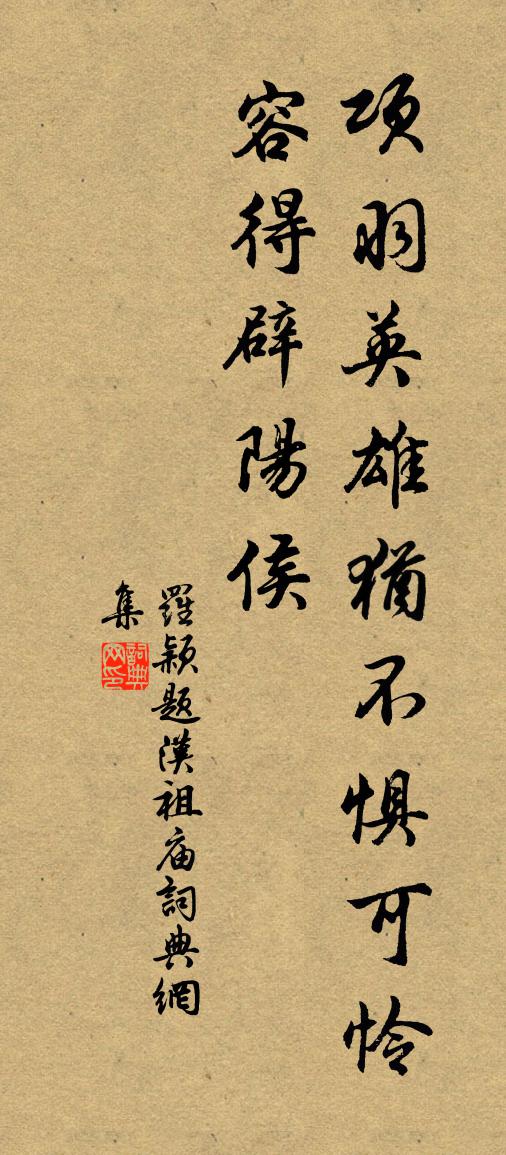 项羽英雄猶不惧可怜
容得辟陽侯
羅颖题漢祖庙詞典網
集
詞典网印